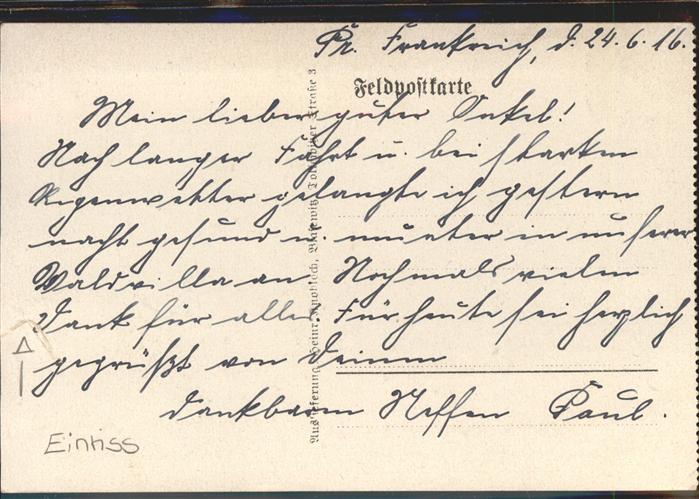 Pr. Frankreich, d. 24.6.16.
Feldpostkarte
Mein lieber guter Onkel!
Nach langer Fahrt u. bei starkem
Regenwetter gelangte ich gestern
nacht gesund u. munter in unserer
Waldvilla an. Nochmals vielen
Dank für alles. Für heute sei herzlich
gegrüßt von Deinem
dankbaren Neffen Paul.
Einriss
Auslieferung Heinr. Straße 3